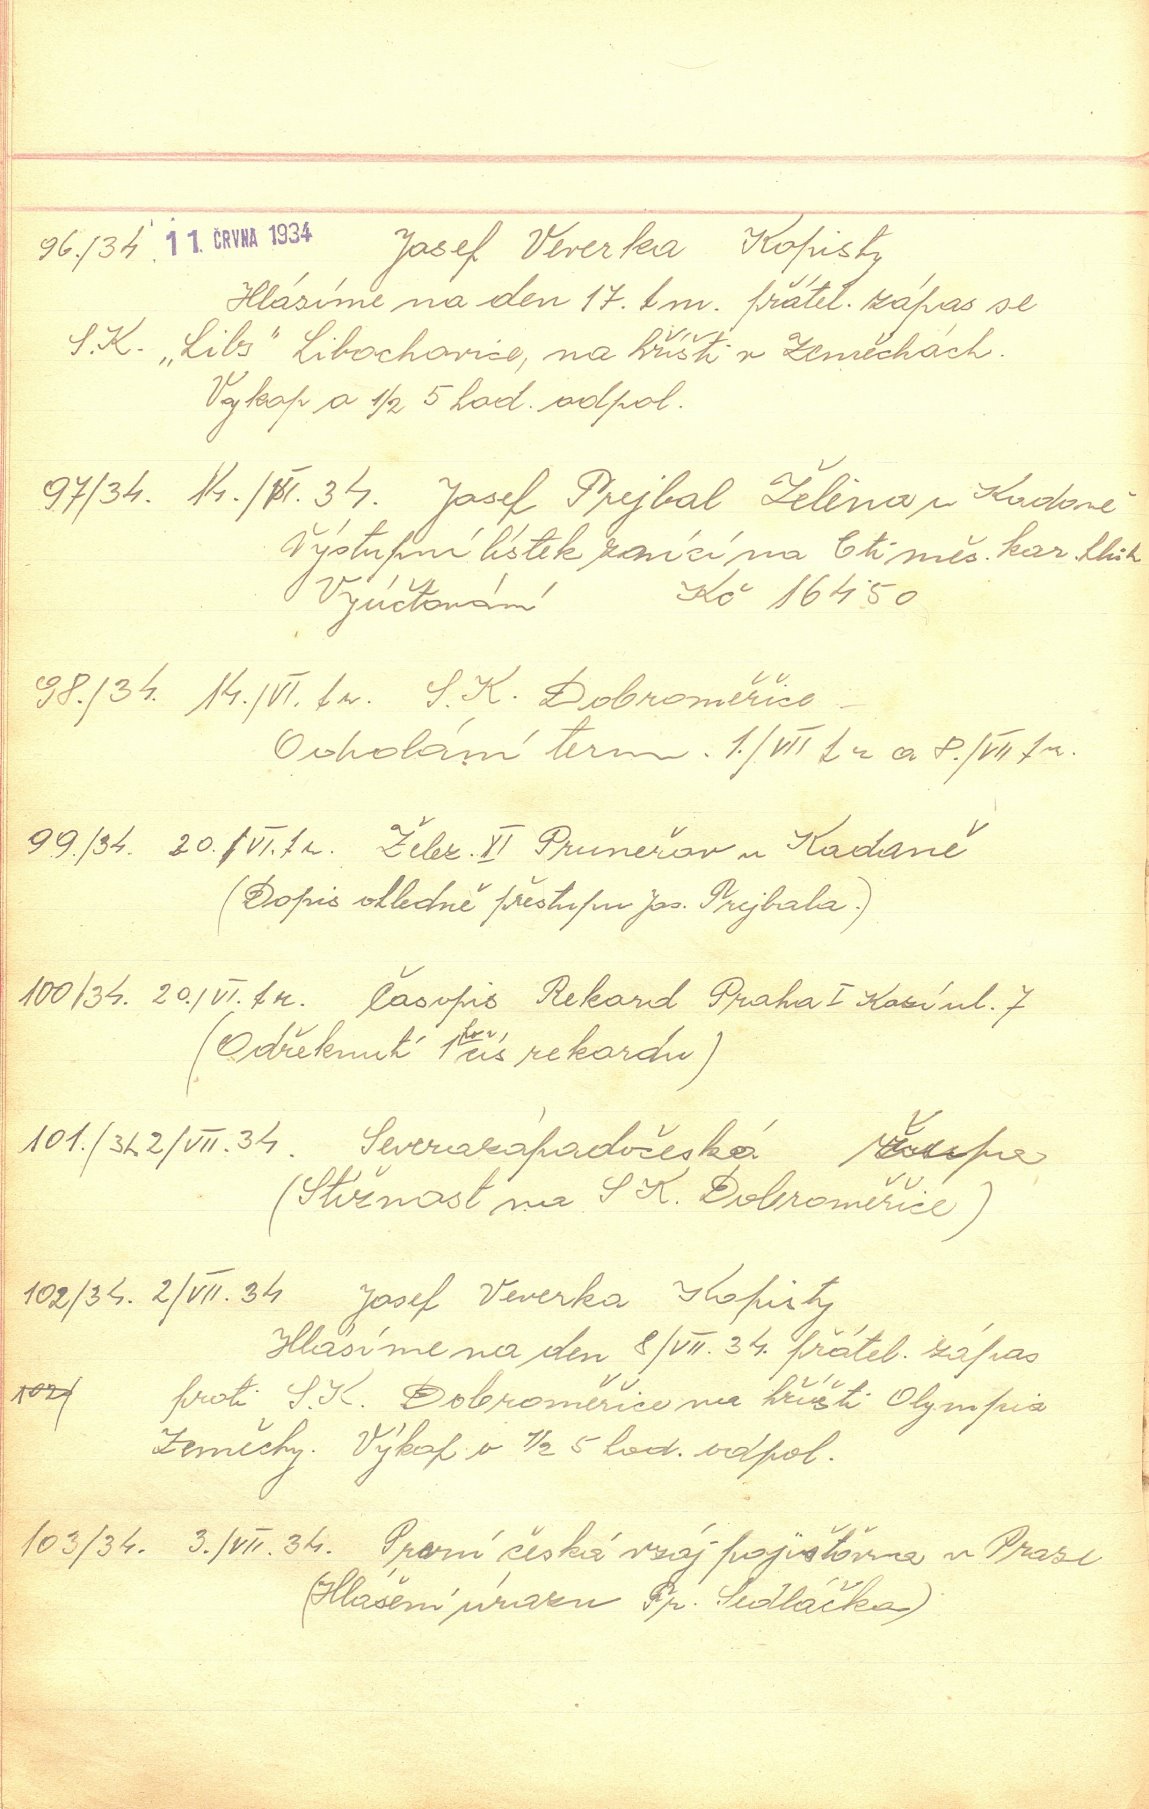 96./34. 11. ČRVNA 1934 Josef Veverka Kopisty
Hlásíme na den 17. t m. přátel. zápas se
S.K. „Libs" Libochovice, na hřišti v Zeměchách.
Vykop o 1/2 5 hod. odpol.
97/34. 14./VI. 34. Josef Prejbal Želina u Kadaně
Výstupní lístek znící na 6ti měs. kar. lhůt
Vyúčtování Kč 164 50
98./34. 14./VI. t r. S.K. Dobroměřice
Odvolání term. 1./VII t r a 8./VII t r.
99./34. 20./VI. t r. Želez. VI Prunéřov u Kadaně
(Dopis ohledně přestupu Jos. Prejbala.)
100/34. 20./VI. t r. Časopis Rekord Praha I Kozí ul. 7
(Odřeknutí 1 čís rekordu)
101./34 2/VII. 34. Severozápadočeská župa
(Stížnost na S K. Dobroměřice)
102/34. 2/VII. 34 Josef Veverka Kopisty
Hlásíme na den 8/VII. 34. přátel. zápas
102/ proti S.K. Dobroměřice na hřišti Olympia
Zeměchy. Výkop o 1/2 5 hod. odpol.
103/34. 3./VII. 34. První česká vzáj pojišťovna v Praze
(Hlášení úrazu Pr. Sedláčka)